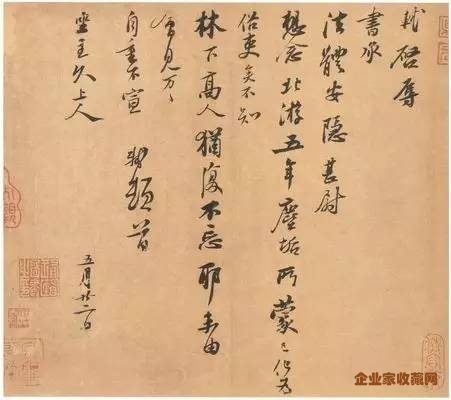 軾啓辱
書承
法體安隱甚尉
想念北游五年塵垢所蒙已化爲
俗吏矣不知
林下高人猶復不忘耶未由
會見万万
自重不宣 軾頓首
坐主久上人
五月廿二日
企业家收藏网